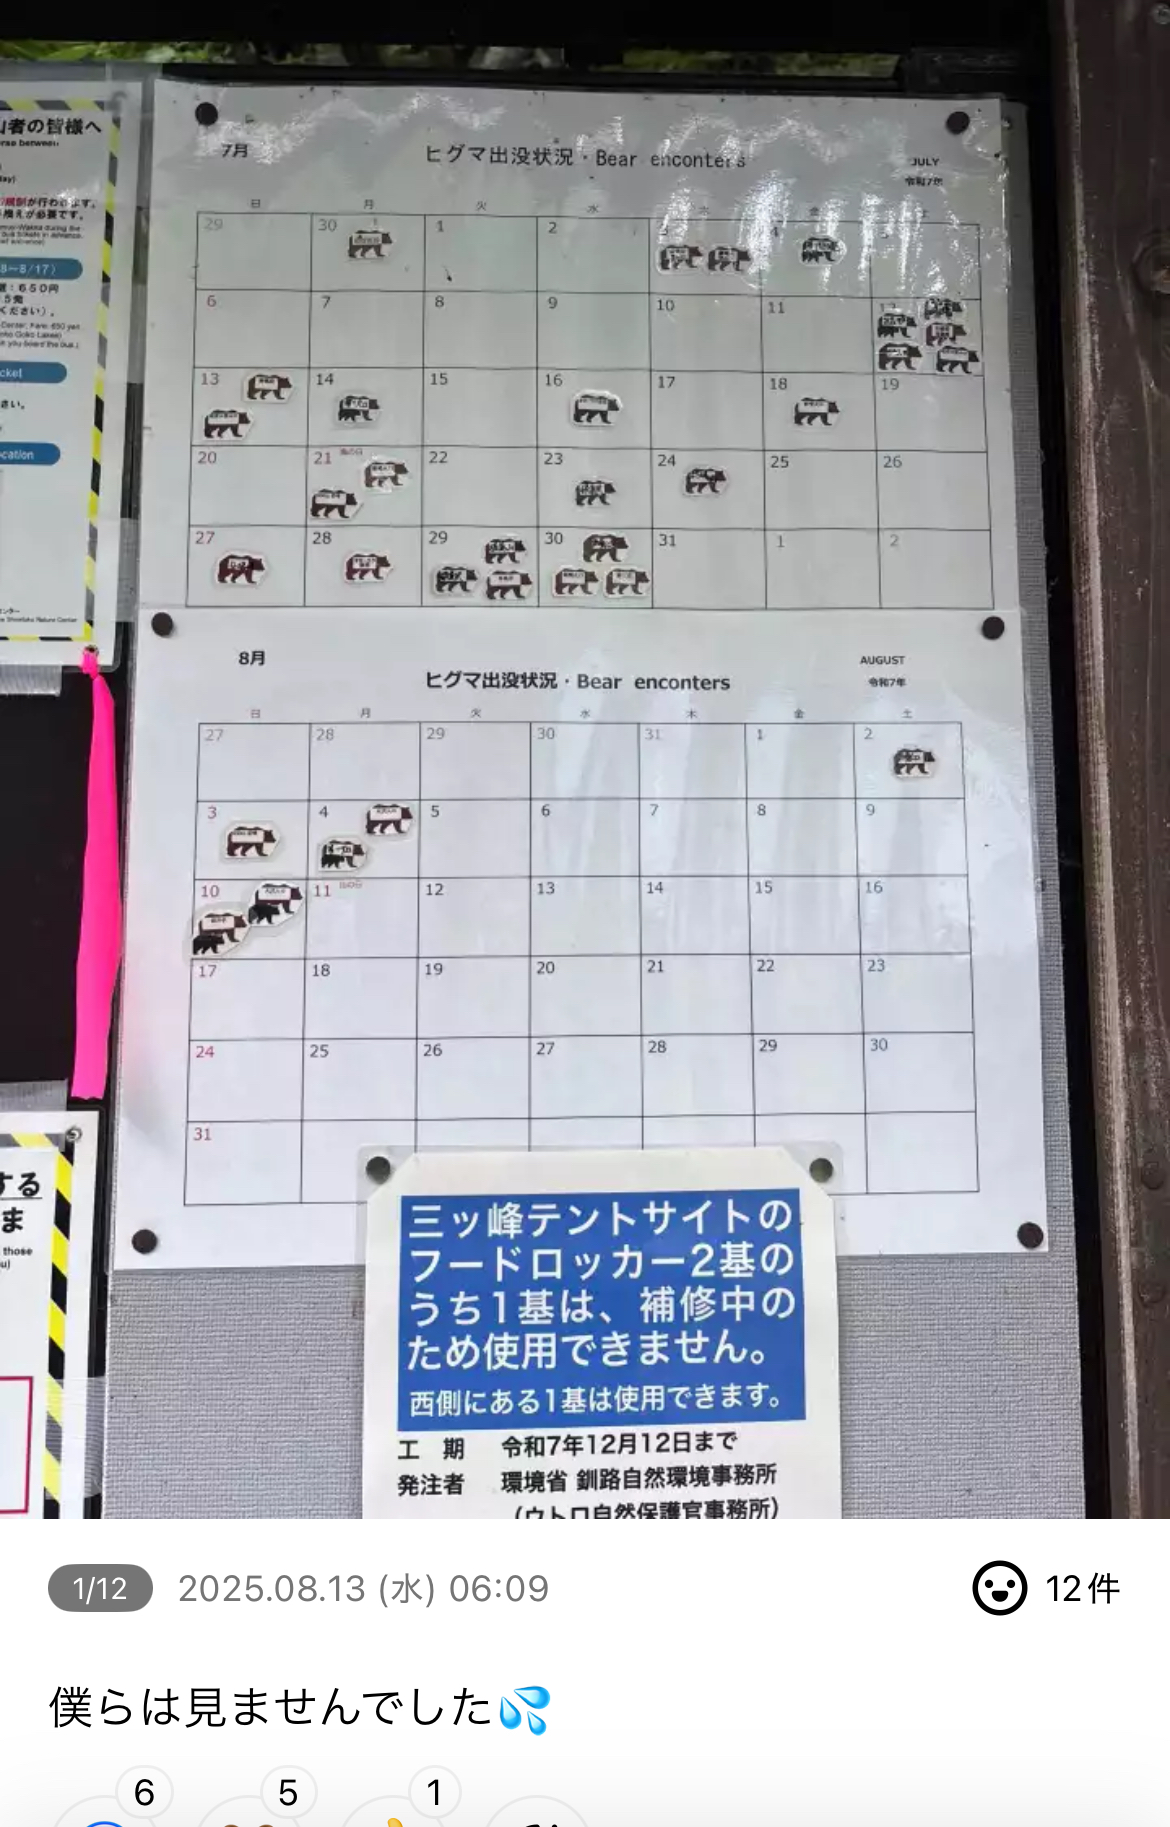 者の皆様へ
7月
ヒグマ出没状況・Bear enconters
JULY
令和7年
日 月 火 水 木 金 土
29 30 1 2 3 4 5
6 7 8 9 10 11 12
13 14 15 16 17 18 19
20 21 22 23 24 25 26
27 28 29 30 31 1 2
8月
ヒグマ出没状況・Bear enconters
AUGUST
令和7年
日 月 火 水 木 金 土
27 28 29 30 31 1 2
3 4 5 6 7 8 9
10 11 12 13 14 15 16
17 18 19 20 21 22 23
24 25 26 27 28 29 30
31
8~8/17）
：650円
ください）。
cket
さい。
cation
する
ま
those
三ッ峰テントサイトの
フードロッカー2基の
うち1基は、補修中の
ため使用できません。
西側にある1基は使用できます。
工　期　令和7年12月12日まで
発注者　環境省 釧路自然環境事務所
（ウトロ自然保護官事務所）
1/12 2025.08.13 (水) 06:09 12件
僕らは見ませんでした💦
6 5 1